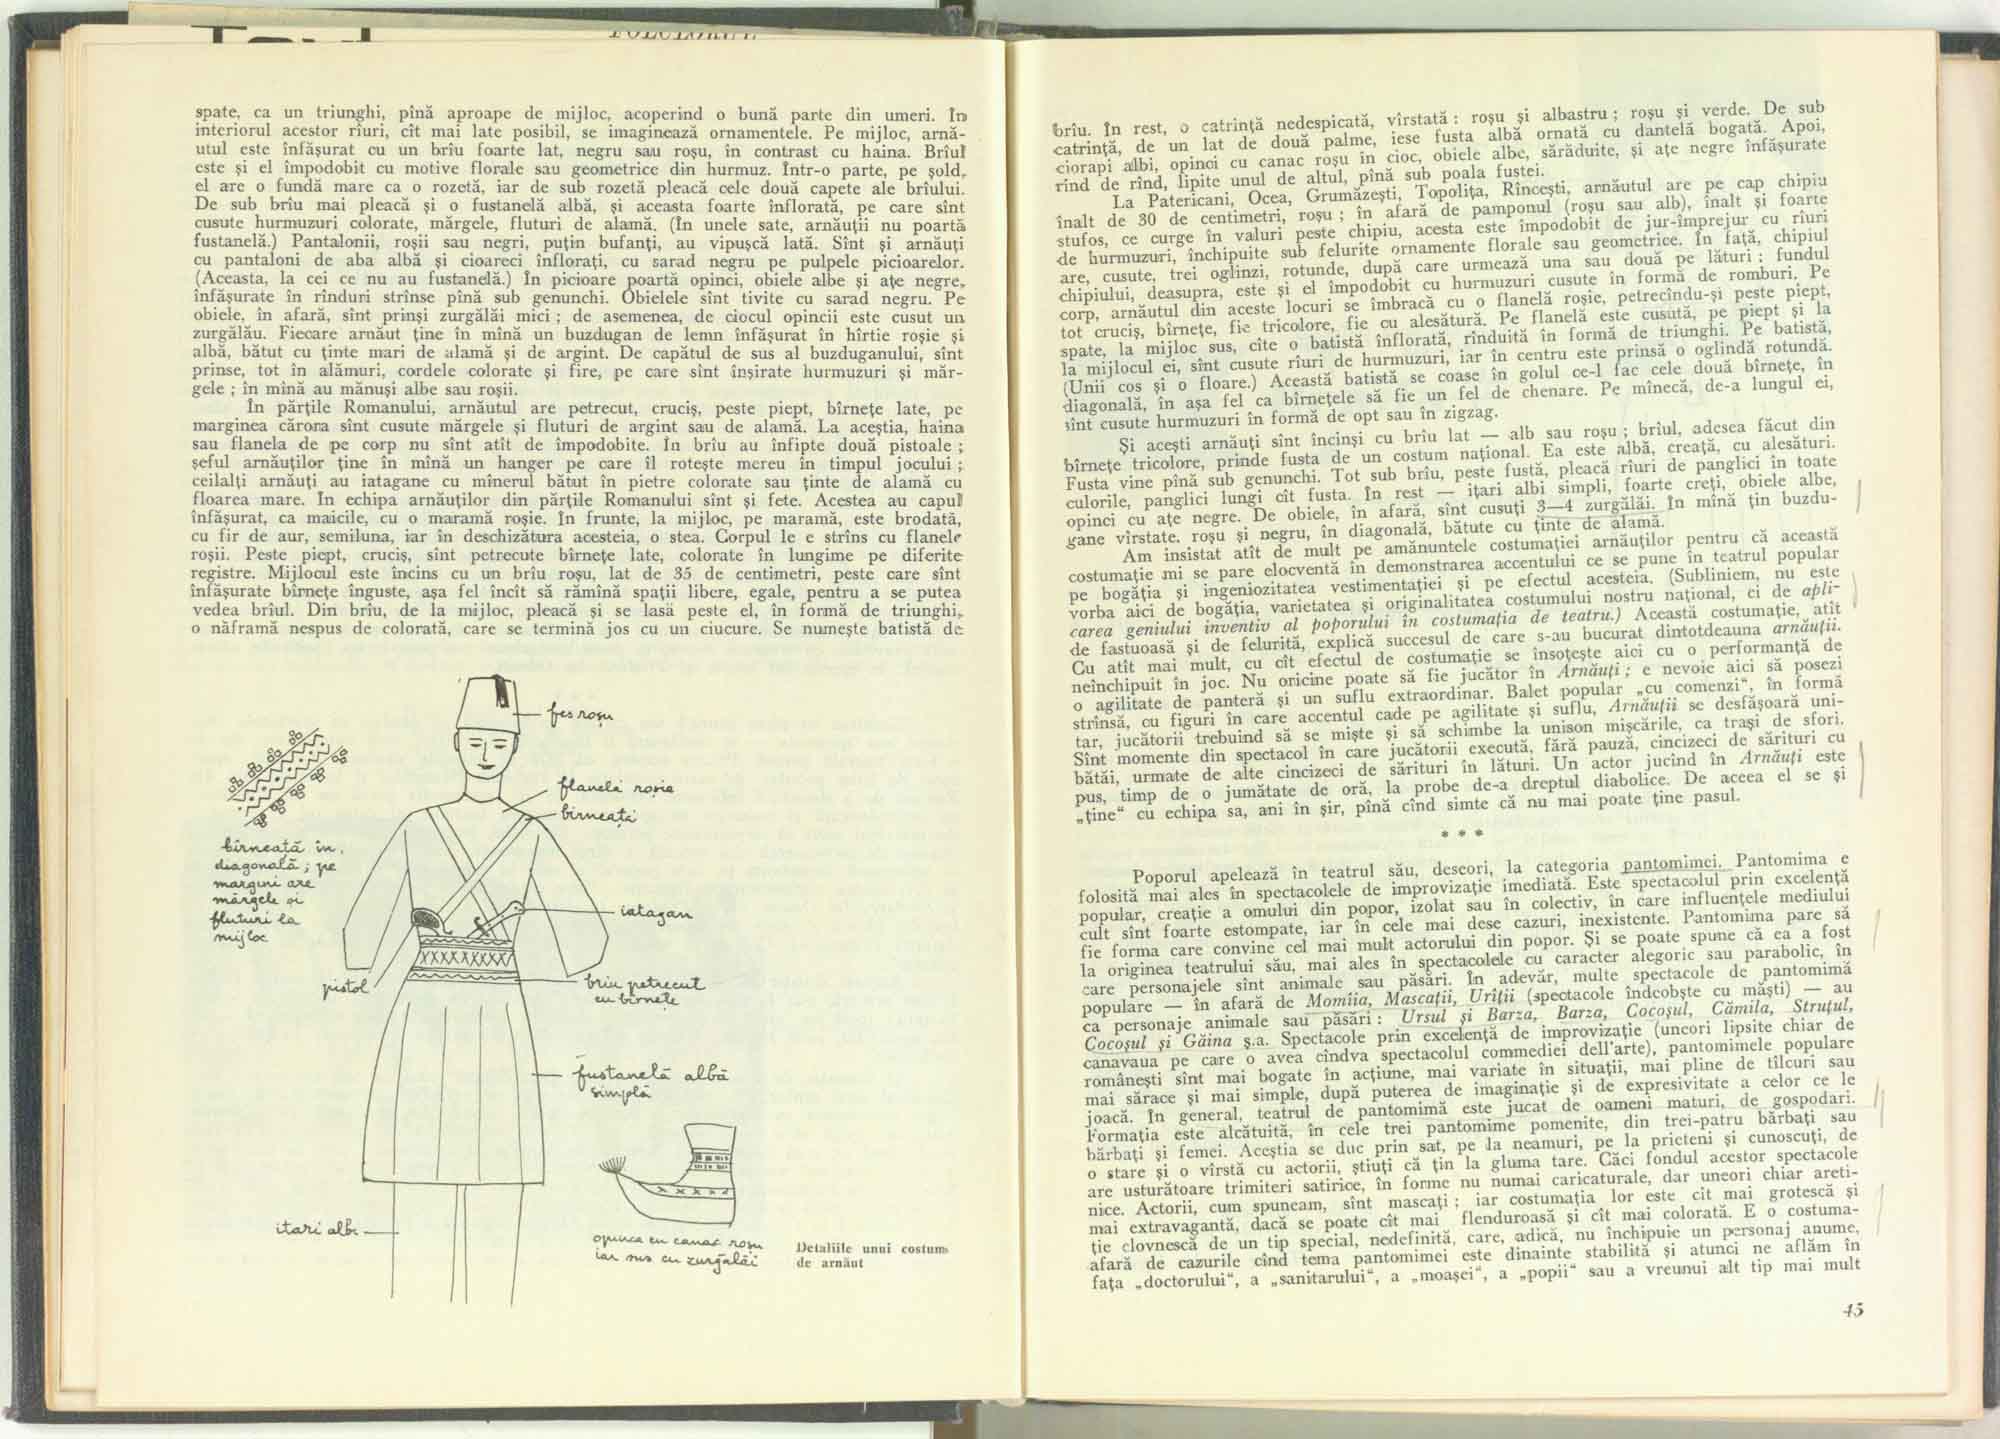 FOLCLORUL
spate, ca un triunghi, pînă aproape de mijloc, acoperind o bună parte din umeri. În
interiorul acestor rîuri, cît mai late posibil, se imaginează ornamentele. Pe mijloc, arnă-
utul este înfășurat cu un brîu foarte lat, negru sau roșu, în contrast cu haina. Brîul
este și el împodobit cu motive florale sau geometrice din hurmuz. Într-o parte, pe șold,
el are o fundă mare ca o rozetă, iar de sub rozetă pleacă cele două capete ale brîului.
De sub brîu mai pleacă și o fustanelă albă, și aceasta foarte înflorată, pe care sînt
cusute hurmuzuri colorate, mărgele, fluturi de alamă. (In unele sate, arnăuții nu poartă
fustanelă.) Pantalonii, roșii sau negri, puțin bufanți, au vipușcă lată. Sînt și arnăuți
cu pantaloni de aba albă și cioareci înflorați, cu sarad negru pe pulpele picioarelor.
(Aceasta, la cei ce nu au fustanelă.) În picioare poartă opinci, obiele albe și ațe negre,
înfășurate în rînduri strînse pînă sub genunchi. Obielele sînt tivite cu sarad negru. Pe
obiele, în afară, sînt prinși zurgălăi mici ; de asemenea, de ciocul opincii este cusut un
zurgălău. Fiecare arnăut ține în mînă un buzdugan de lemn înfășurat în hîrtie roșie și
albă, bătut cu ținte mari de alamă și de argint. De capătul de sus al buzduganului, sînt
prinse, tot în alămuri, cordele colorate și fire, pe care sînt înșirate hurmuzuri și măr-
gele ; în mînă au mănuși albe sau roșii.
În părțile Romanului, arnăutul are petrecut, cruciș, peste piept, bîrnețe late, pe
marginea cărora sînt cusute mărgele și fluturi de argint sau de alamă. La aceștia, haina
sau flanela de pe corp nu sînt atît de împodobite. În brîu au înfipte două pistoale ;
șeful arnăuților ține în mînă un hanger pe care îl rotește mereu în timpul jocului ;
ceilalți arnăuți au iatagane cu mînerul bătut în pietre colorate sau ținte de alamă cu
floarea mare. In echipa arnăuților din părțile Romanului sînt și fete. Acestea au capul
înfășurat, ca maicile, cu o maramă roșie. În frunte, la mijloc, pe maramă, este brodată,
cu fir de aur, semiluna, iar în deschizătura acesteia, o stea. Corpul le e strîns cu flanele
roșii. Peste piept, cruciș, sînt petrecute bîrnețe late, colorate în lungime pe diferite
registre. Mijlocul este încins cu un brîu roșu, lat de 35 de centimetri, peste care sînt
înfășurate bîrnețe înguste, așa fel încît să rămînă spații libere, egale, pentru a se putea
vedea brîul. Din brîu, de la mijloc, pleacă și se lasă peste el, în formă de triunghi,
o năframă nespus de colorată, care se termină jos cu un ciucure. Se numește batistă de
fes roșu
flanelă roșie
bîrneață
bîrneață în
diagonală ; pe
margini are
mărgele și
fluturi la
mijloc
iatagan
pistol
brîu petrecut
cu bîrnețe
fustanelă albă
simplă
itari albi
opinca cu canac roșu
iar sus cu zurgălăi
Detaliile unui costum
de arnăut
brîu. În rest, o catrință nedespicată, vîrstată : roșu și albastru ; roșu și verde. De sub
catrință, de un lat de două palme, iese fusta albă ornată cu dantelă bogată. Apoi,
ciorapi albi, opinci cu canac roșu in cioc, obiele albe, sărăduite, și ațe negre înfășurate
rînd de rînd, lipite unul de altul, pînă sub poala fustei.
La Patericani, Ocea, Grumăzești, Topolița, Rîncești, arnăutul are pe cap chipiu
înalt de 30 de centimetri, roșu ; în afară de pamponul (roșu sau alb), înalt și foarte
stufos, ce curge în valuri peste chipiu, acesta este împodobit de jur-împrejur cu rîuri
de hurmuzuri, închipuite sub felurite ornamente florale sau geometrice. În față, chipiul
are, cusute, trei oglinzi, rotunde, după care urmează una sau două pe lături ; fundul
chipiului, deasupra, este și el împodobit cu hurmuzuri cusute în formă de romburi. Pe
corp, arnăutul din aceste locuri se îmbracă cu o flanelă roșie, petrecîndu-și peste piept,
tot cruciș, bîrnețe, fie tricolore, fie cu alesătură. Pe flanelă este cusută, pe piept și la
spate, la mijloc sus, cîte o batistă înflorată, rînduită în formă de triunghi. Pe batistă,
la mijlocul ei, sînt cusute rîuri de hurmuzuri, iar în centru este prinsă o oglindă rotundă.
(Unii cos și o floare.) Această batistă se coase în golul ce-l fac cele două bîrnețe, în
diagonală, în așa fel ca bîrnețele să fie un fel de chenare. Pe mînecă, de-a lungul ei,
sînt cusute hurmuzuri în formă de opt sau în zigzag.
Și acești arnăuți sînt încinși cu brîu lat — alb sau roșu ; brîul, adesea făcut din
bîrnețe tricolore, prinde fusta de un costum național. Ea este albă, creață, cu alesături.
Fusta vine pînă sub genunchi. Tot sub brîu, peste fustă, pleacă rîuri de panglici în toate
culorile, panglici lungi cît fusta. În rest — ițari albi simpli, foarte creți, obiele albe,
opinci cu ațe negre. De obiele, în afară, sînt cusuți 3—4 zurgălăi. În mînă țin buzdu-
gane vîrstate. roșu și negru, în diagonală, bătute cu ținte de alamă.
Am insistat atît de mult pe amănuntele costumației arnăuților pentru că această
costumație mi se pare elocventă în demonstrarea accentului ce se pune în teatrul popular
pe bogăția și ingeniozitatea vestimentației și pe efectul acesteia. (Subliniem, nu este
vorba aici de bogăția, varietatea și originalitatea costumului nostru național, ci de apli-
carea geniului inventiv al poporului în costumația de teatru.) Această costumație, atît
de fastuoasă și de felurită, explică succesul de care s-au bucurat dintotdeauna arnăuții.
Cu atît mai mult, cu cît efectul de costumație se însoțește aici cu o performanță de
neînchipuit în joc. Nu oricine poate să fie jucător în Arnăuți ; e nevoie aici să posezi
o agilitate de panteră și un suflu extraordinar. Balet popular „cu comenzi“, în formă
strînsă, cu figuri în care accentul cade pe agilitate și suflu, Arnăuții se desfășoară uni-
tar, jucătorii trebuind să se miște și să schimbe la unison mișcările, ca trași de sfori.
Sînt momente din spectacol în care jucătorii execută, fără pauză, cincizeci de sărituri cu
bătăi, urmate de alte cincizeci de sărituri în lături. Un actor jucind în Arnăuți este
pus, timp de o jumătate de oră, la probe de-a dreptul diabolice. De aceea el se și
„ține“ cu echipa sa, ani în șir, pînă cînd simte că nu mai poate ține pasul.
* * *
Poporul apelează în teatrul său, deseori, la categoria pantomimei. Pantomima e
folosită mai ales în spectacolele de improvizație imediată. Este spectacolul prin excelență
popular, creație a omului din popor, izolat sau în colectiv, în care influențele mediului
cult sînt foarte estompate, iar în cele mai dese cazuri, inexistente. Pantomima pare să
fie forma care convine cel mai mult actorului din popor. Și se poate spune că ea a fost
la originea teatrului său, mai ales în spectacolele cu caracter alegoric sau parabolic, în
care personajele sînt animale sau păsări. În adevăr, multe spectacole de pantomimă
populare — în afară de Momîia, Mascații, Urîții (spectacole îndeobște cu măști) — au
ca personaje animale sau păsări : Ursul și Barza, Barza, Cocoșul, Cămila, Struțul,
Cocoșul și Găina ș.a. Spectacole prin excelență de improvizație (uneori lipsite chiar de
canavaua pe care o avea cîndva spectacolul commediei dell'arte), pantomimele populare
românești sînt mai bogate în acțiune, mai variate în situații, mai pline de tîlcuri sau
mai sărace și mai simple, după puterea de imaginație și de expresivitate a celor ce le
joacă. În general, teatrul de pantomimă este jucat de oameni maturi, de gospodari.
Formația este alcătuită, în cele trei pantomime pomenite, din trei-patru bărbați sau
bărbați și femei. Aceștia se duc prin sat, pe la neamuri, pe la prieteni și cunoscuți, de
o stare și o vîrstă cu actorii, știuți că țin la gluma tare. Căci fondul acestor spectacole
are usturătoare trimiteri satirice, în forme nu numai caricaturale, dar uneori chiar areti-
nice. Actorii, cum spuneam, sînt mascați ; iar costumația lor este cît mai grotescă și
mai extravagantă, dacă se poate cît mai flenduroasă și cît mai colorată. E o costuma-
ție clovnescă de un tip special, nedefinită, care, adică, nu închipuie un personaj anume,
afară de cazurile cînd tema pantomimei este dinainte stabilită și atunci ne aflăm în
fața „doctorului“, a „sanitarului“, a „moașei“, a „popii“ sau a vreunui alt tip mai mult
45